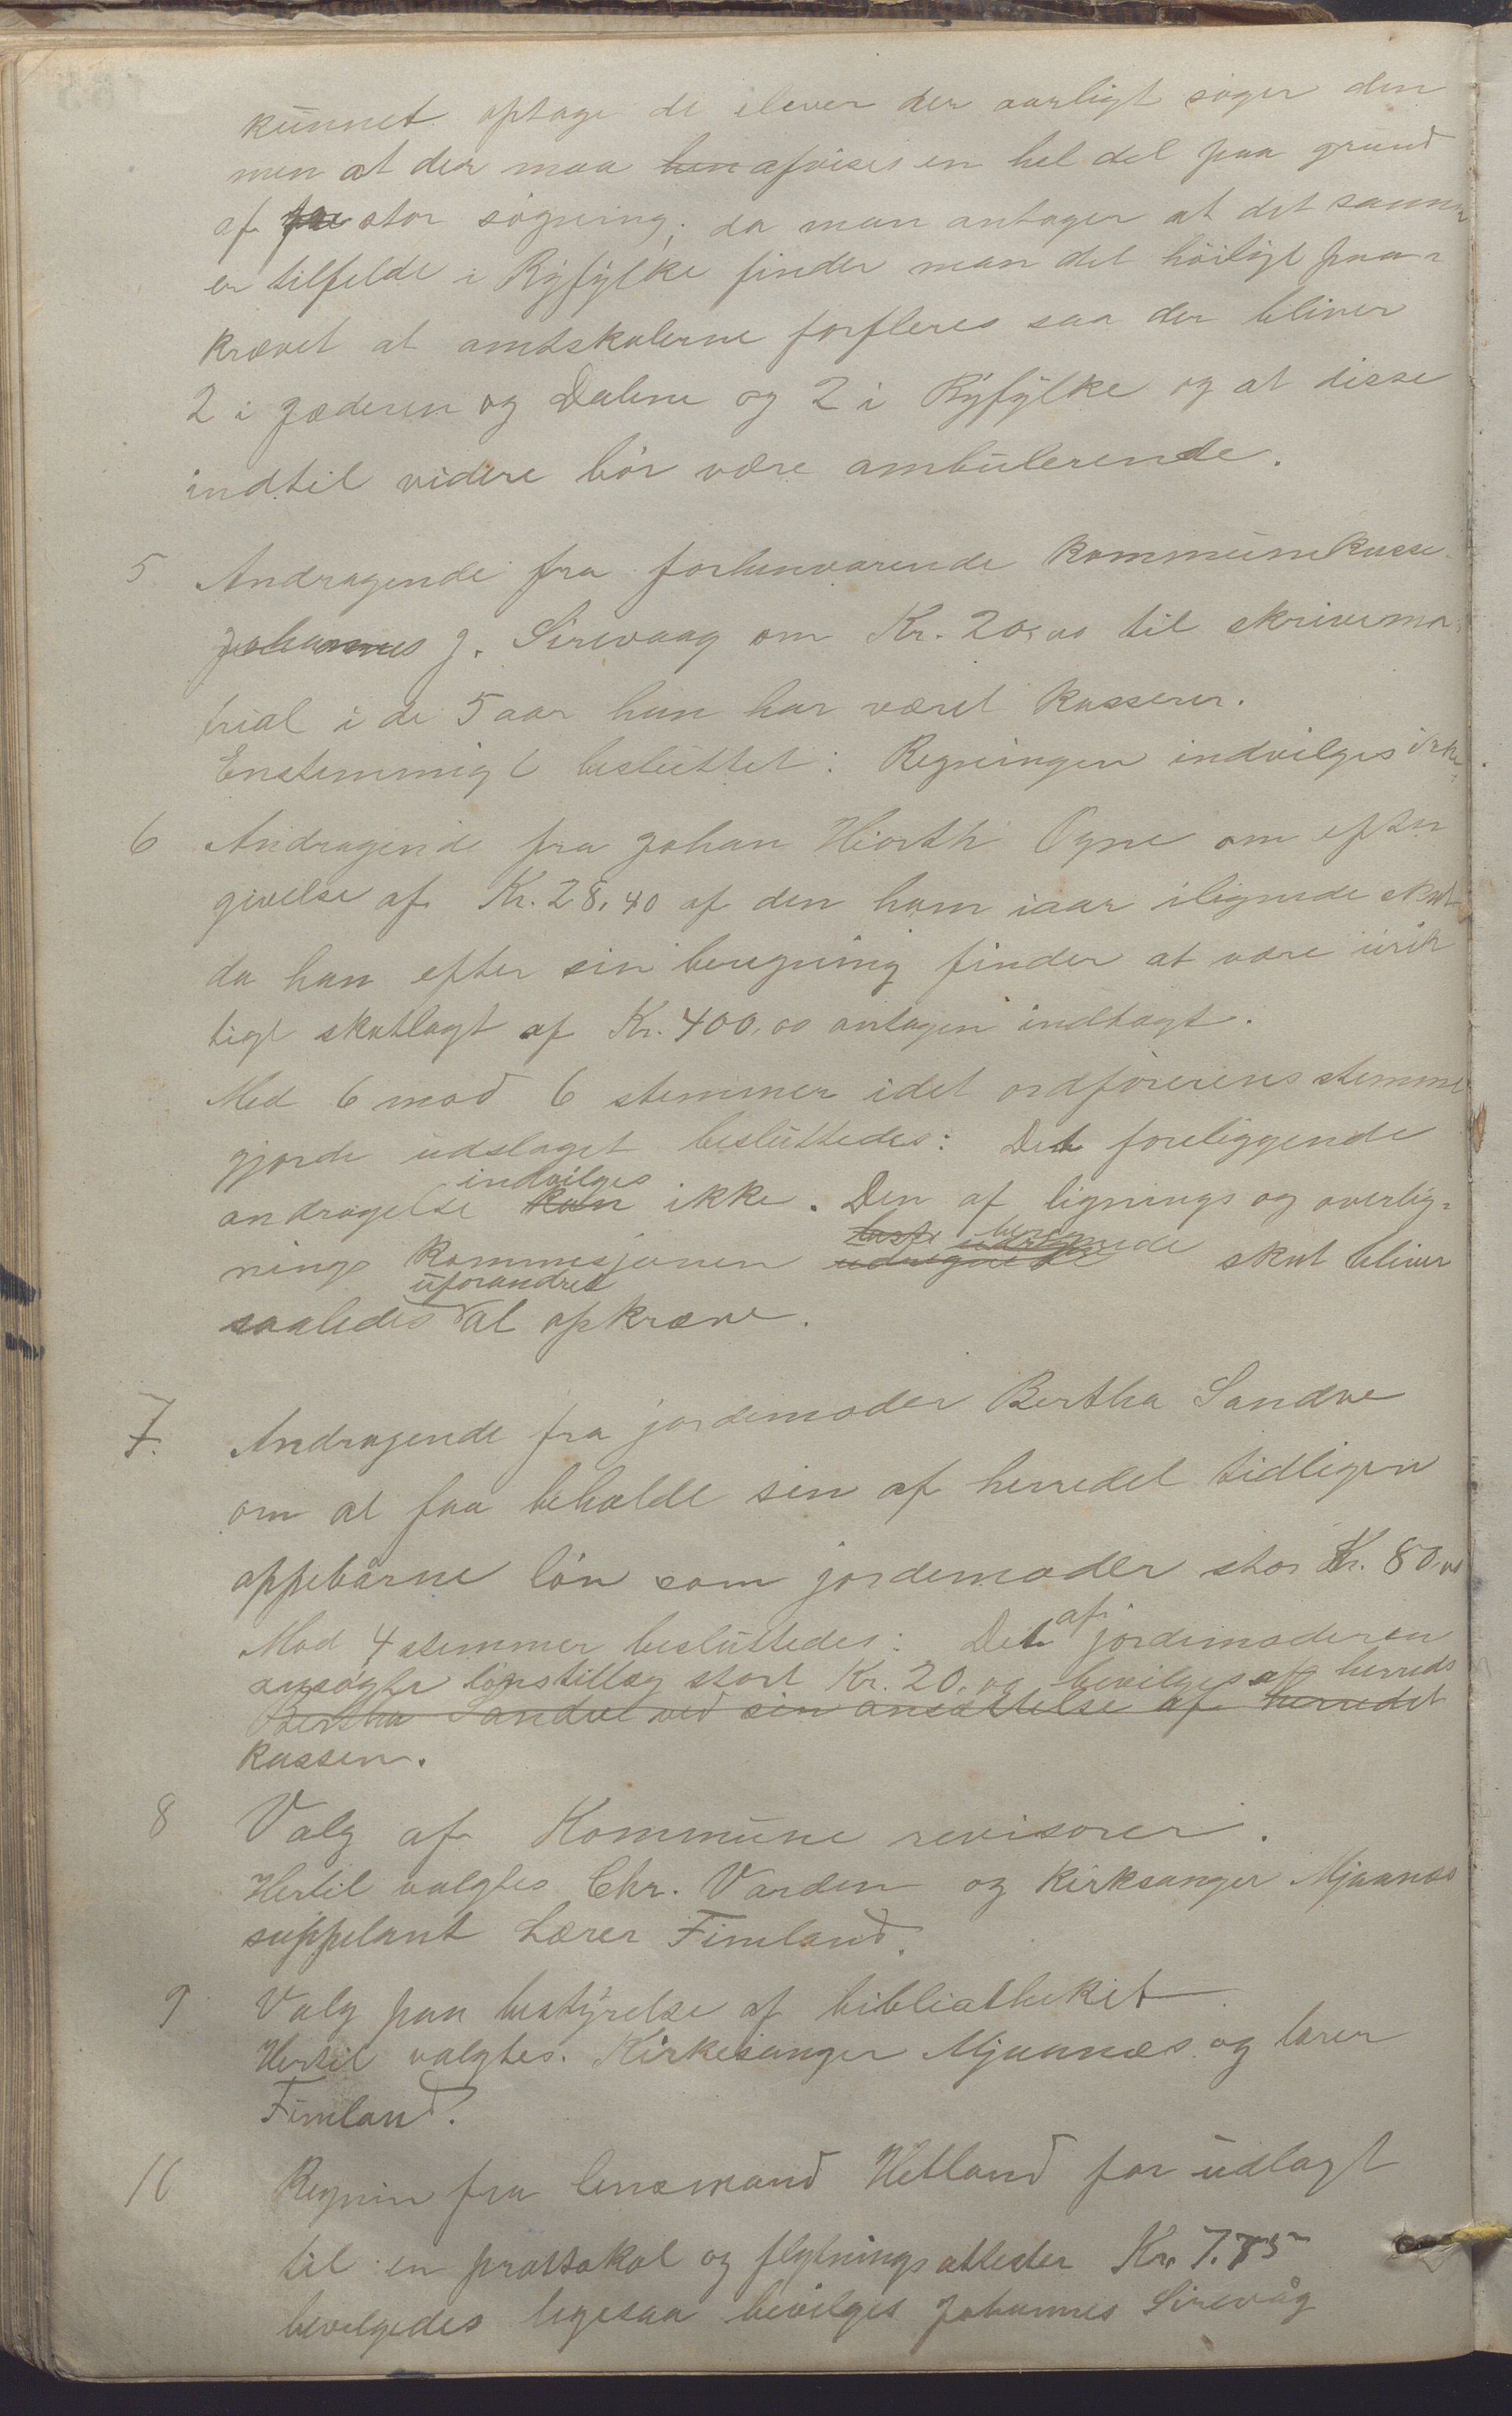 kunnet optage de elever der aarligt søger den
men at der maa hen afvises en hel del paa grund
af for stor søgning; da man antager at det samme
er tilfelde i Ryfylke finder man det høiligt paa-
krævet at amtskolerne forfleres saa der bliver
2 i Jæderen og Dalene og 2 i Ryfylke og at disse
indtil videre bør være ambulerende.
5 Andragende fra forhenværende kommunekasse-
Johannes J. Sirevaag om Kr. 20,00 til skrivema-
trial i de 5 aar han har været kasserer.
Enstemmigt besluttet: Regningen indvilges ikke.
6 Andragende fra Johan Hiorth Ogne om efter
givelse af Kr. 28,40 af den ham iaar ilignede skat
da han efter sin beregning finder at være urik
tigt skatlagt af Kr. 400,00 antagen indtægt.
Med 6 mod 6 stemmer idet ordførerens stemme
gjorde udslaget besluttedes: Det foreliggende
indvilges
andragelse kan ikke. Den af lignings og overlig-
beregnede
nings kommesjonen udregnede skat bliver
uforandret
saaledes at opkræve.
7. Andragende fra jordemoder Bertha Sandve
om at faa beholde sin af herredet tidligere
oppebårne løn som jordemoder stor Kr. 80,00
Mod 4 stemmer besluttedes: Det af jordemoderen
ansøgte lønstillæg stort Kr. 20,00 bevilges af herreds
Bertha Sandve ved sin ansættelse af herredet
kassen.
8 Valg af Kommune revisorer.
Hertil valgtes Chr. Varden og Kirksanger Mjaanes
suppelant Lærer Fimland.
9 Valg paa bestyrelse af bibliatheket
Hertil valgtes. Kirkesanger Mjaanæs og lærer
Fimland.
10 Regnin fra lensmand Hetland for udlagt
til en prottokol og flytningsattester Kr. 7.75
bevelgedes ligesaa bevilges Johannes Sirevåg